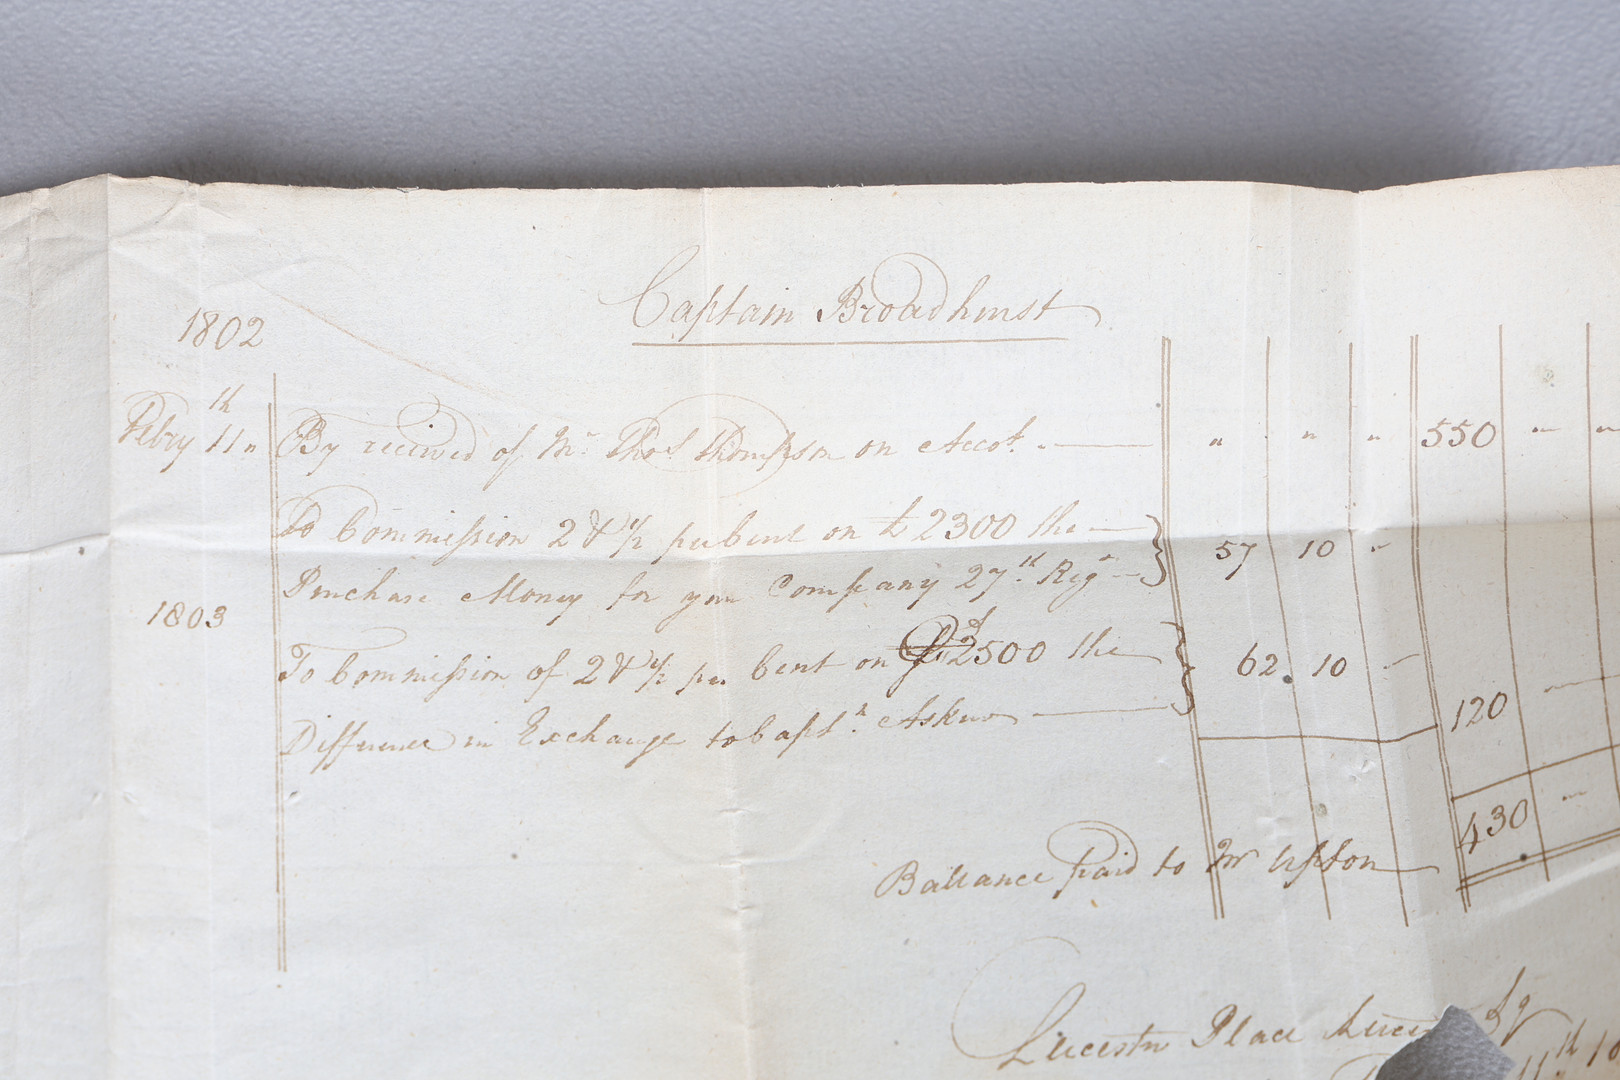 Captain Broadhurst
1802
Febry 11th " By received of Mr Thos Thompson on Accot. " " " " 550 " "
To Commission 2 & 1/2 per Cent on £ 2300 the
Purchase Money for your Company 27th Regt 57 10 "
1803
To Commission of 2 & 1/2 per Cent on 2500 the
Difference in Exchange to Captn Askew 62. 10 120
430 "
Ballance paid to Mr Upton
Leicester Place Leicester Sq
11th